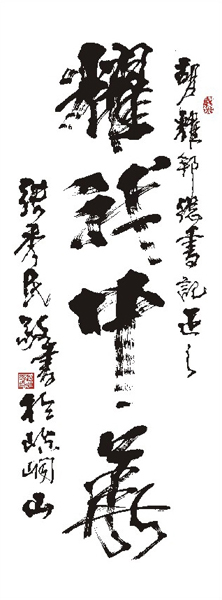 胡耀邦總書記正之
耀我中華
張秀民敬書於崆峒山